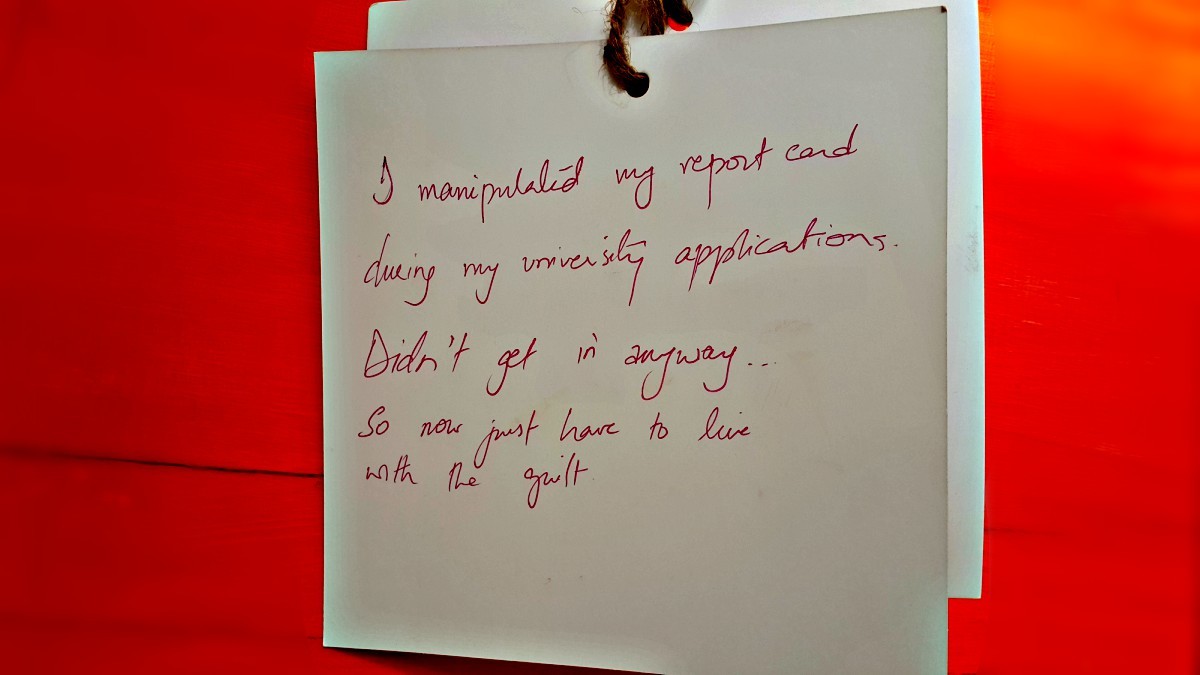 I manipulated my report card
during my university applications.
Didn't get in anyway...
So now just have to live
with the guilt.